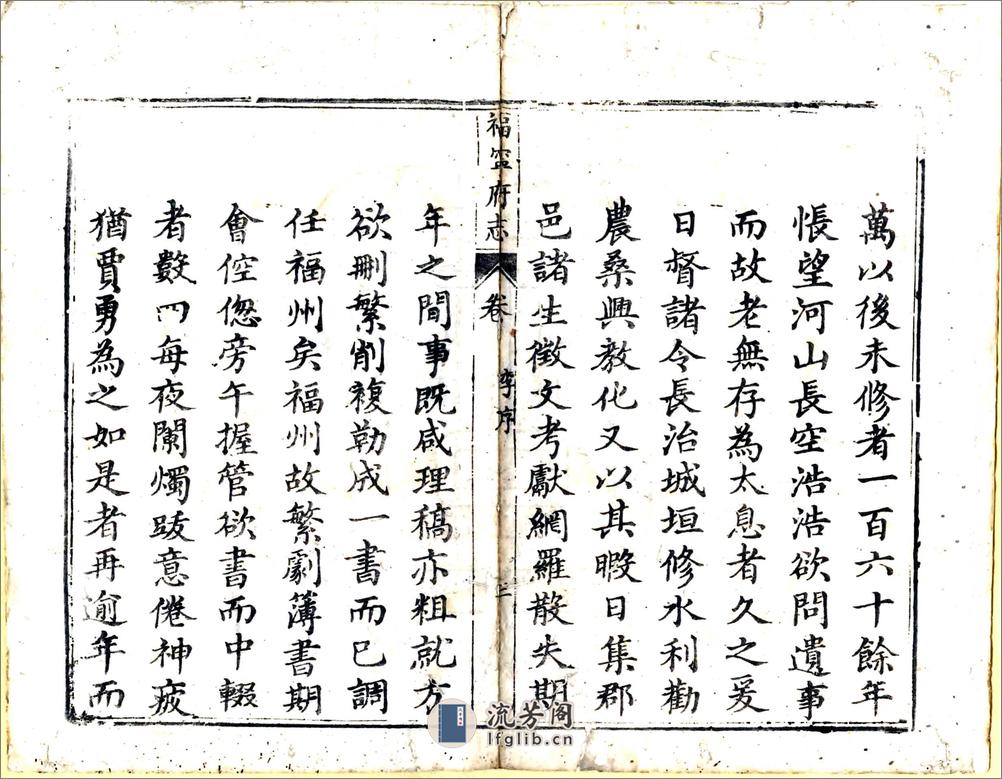 萬以後未修者一百六十餘年
悵望河山長空浩浩欲問遺事
而故老無存為太息者久之爰
日督諸令長治城垣修水利勸
農桑興教化又以其暇日集郡
邑諸生徵文考獻網羅散失期
福寍府志
卷
李序
三
年之間事既咸理稿亦粗就方
欲刪繁削複勒成一書而已調
任福州矣福州故繁劇簿書期
會倥偬旁午握管欲書而中輟
者數四每夜闌燭跋意倦神疲
猶賈勇為之如是者再逾年而
流芳阁
lfglib.cn